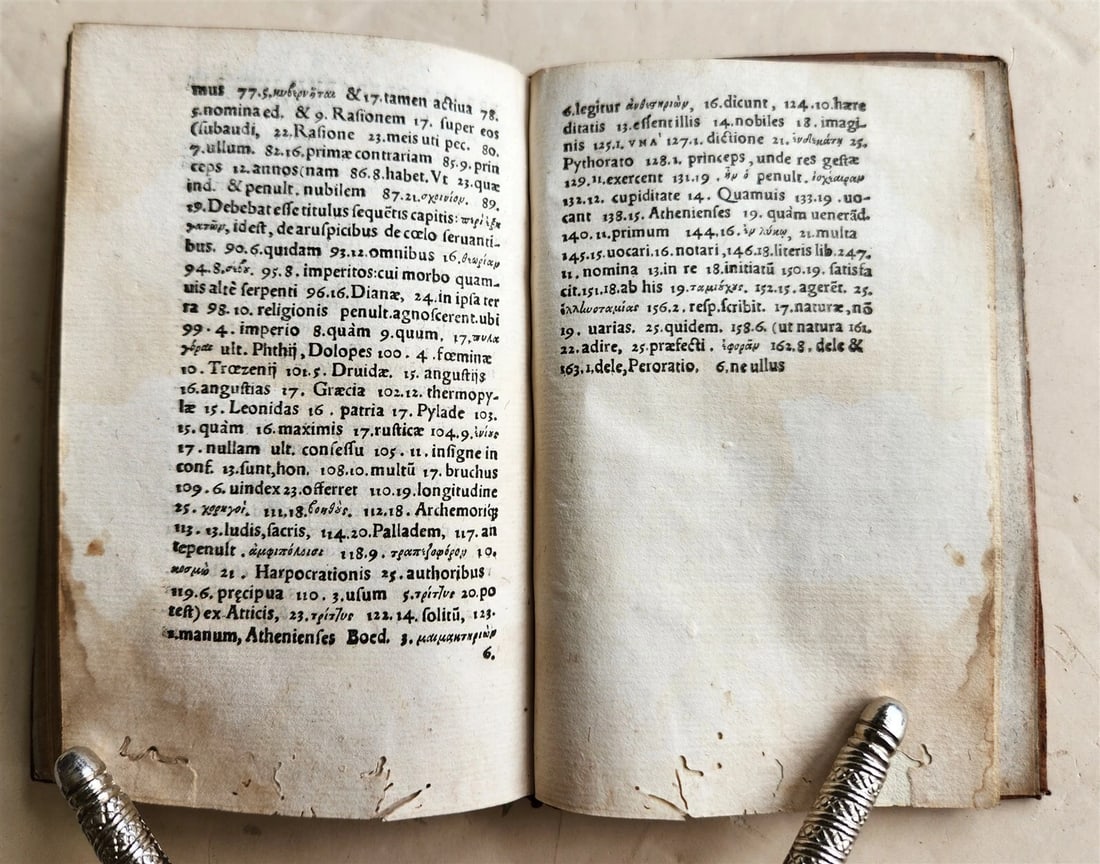 mus 77.5.κυβερνῆται &17.tamen actiua 78.
5.nomina ed. & 9. Raſionem 17. ſuper eos
(ſubaudi, 22.Raſione 23.meis uti pec. 80.
7.ullum. 82.16.primæ contrariam 85.9.prin
ceps 12.annos(nam 86.8.habet.Vt 23.quæ
ind. & penult. nubilem 87.21.σχοινίον. 89.
19.Debebat eſſe titulus ſequētis capitis:
ideſt, de aruſpicibus de cœlo ſeruanti-
bus. 90.6.quidam 93.12.omnibus 16.θεωρίαν
94.8. 95.8. imperitos:cui morbo quam-
uis altè ſerpenti 96.16.Dianæ, 24.in ipſa ter
ra 98.10. religionis penult.agnoſcerent.ubi
99.4. imperio 8.quàm 9.quum, 17.πυλα
γόραι ult. Phthij, Dolopes 100. 4.fœminæ
10. Trœzenij 101.5. Druidæ. 15. anguſtijs
16.anguſtias 17. Græcia 102.12. thermopy-
læ 15. Leonidas 16. patria 17. Pylade 103.
15.quàm 16.maximis 17.ruſticæ 104.9.
17.nullam ult. conſeſſu 105. 11. inſigne in
conſ. 13.ſunt,hon. 108.10.multū 17. bruchus
109.6. uindex 23.offerret 110.19.longitudine
25. χορηγοί. 111.18.βοηθὸς. 112.18. Archemoriꝗ
113. 13.ludis,ſacris, 114.20.Palladem, 117. an
tepenult. ἀμφιπόλοισι 118.9. τραπεζοφόρον 10.
κοσμὼ 21. Harpocrationis 25.authoribus
119.6. pręcipua 110. 3.uſum 5.τρίτἶυς 20.po
teſt) ex Atticis, 23.τρίτἶυς 122.14. ſolitū, 123.
2.manum, Athenienſes Boed. 3. μαιμακτηριὼν
6.
6.legitur ἀνθεστηριὼν, 16.dicunt, 124.10.hære
ditatis 13.eſſent illis 14.nobiles 18.imagi-
nis 125.1. VNA 127.1. dictione 21. 25.
Pythorato 128.1. princeps, unde res geſtæ
129.11.exercent 131.19. penult.
132.12. cupiditate 14. Quamuis 133.19.uo-
cant 138.15. Athenienſes 19. quàm uenerād.
140.11.primum 144.16. 21.multa
145.15.uocari.16.notari,146.18.literis lib.247.
11. nomina 13.in re 18.initiatū 150.19. ſatisfa
cit.151.18.ab his 19.ταμιοῦχος. 152.15.agerēt. 25.
ἑλληνοταμίας 156.2. reſp.ſcribit. 17.naturæ,nō
19. uarias. 25.quidem. 158.6. (ut natura 161.
22.adire, 25.præfecti. ἐφορᾶν 162.8. dele &
163.1.dele,Peroratio, 6.ne ullus